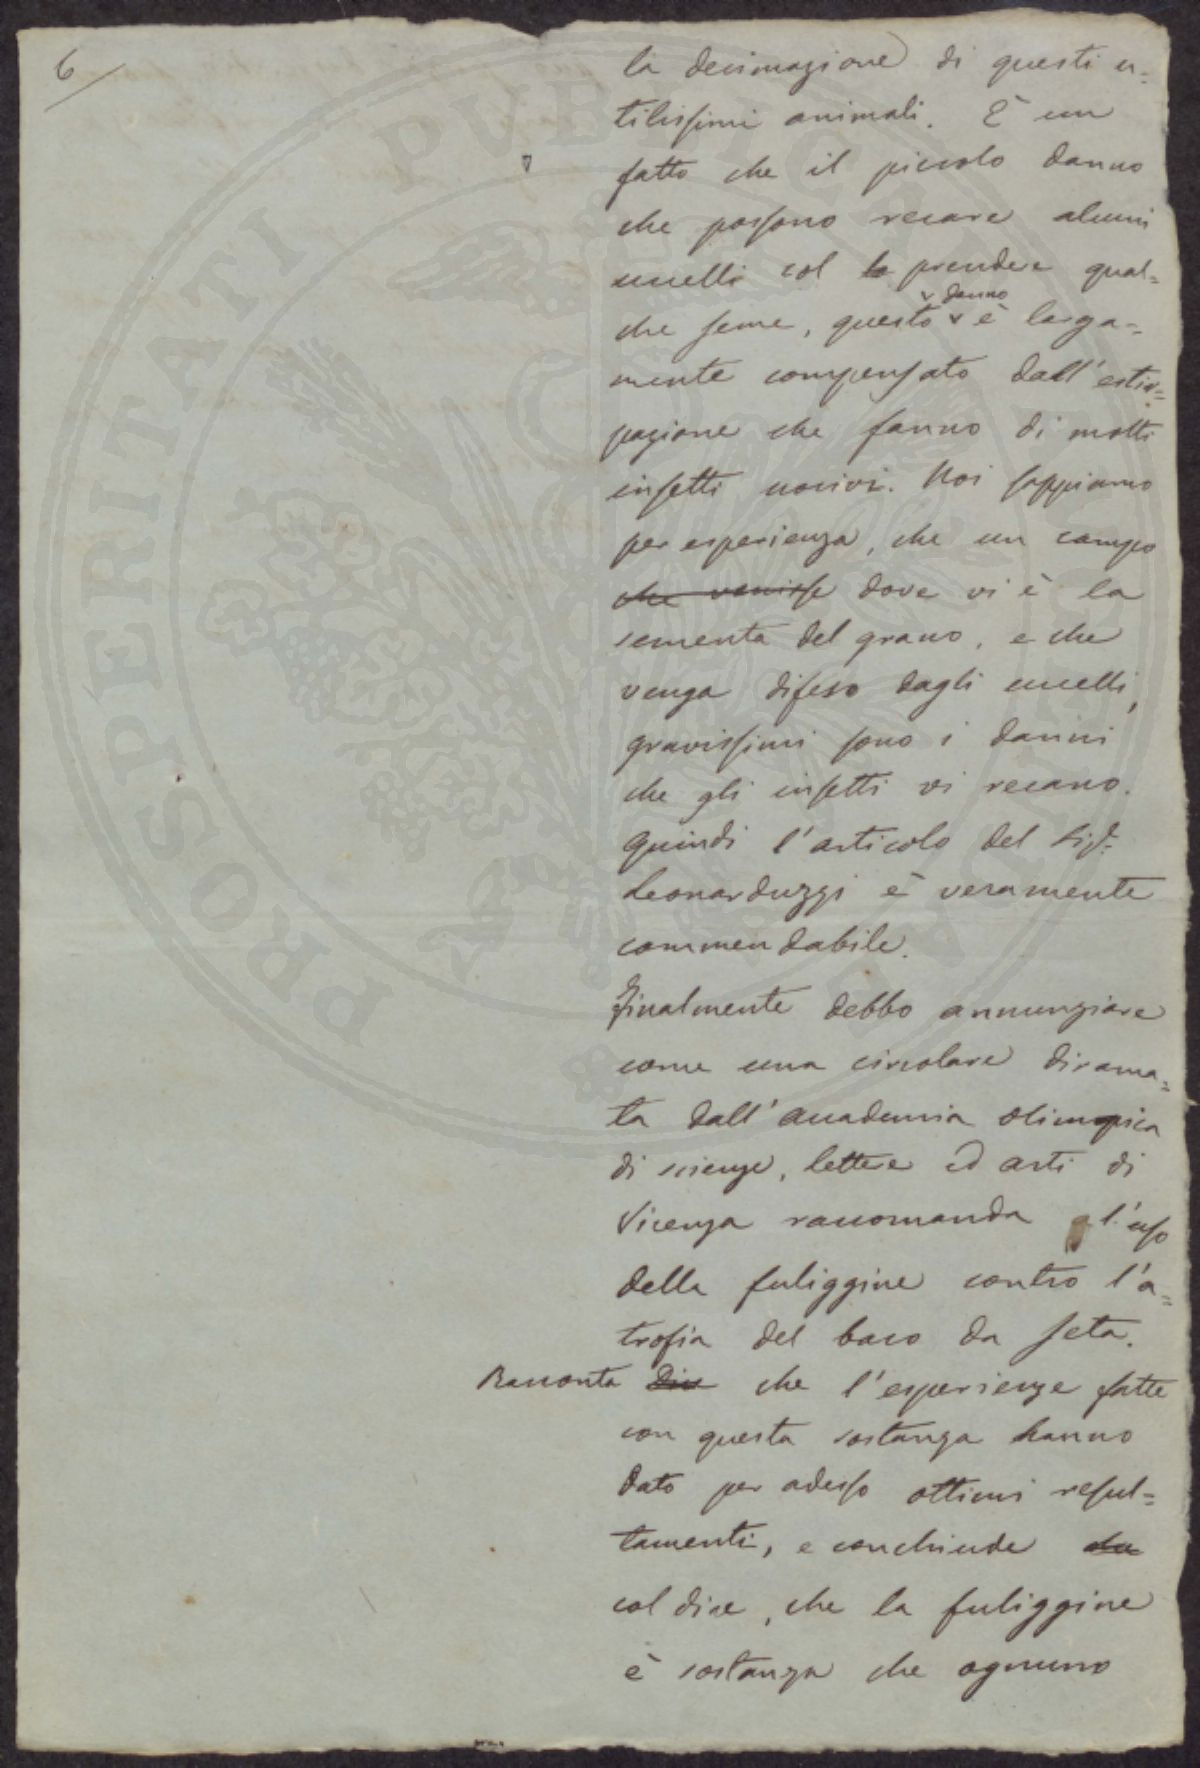 6/
la decimazione di questi u=
tilissimi animali. È un
fatto che il piccolo danno
che possono recare alcuni
uccelli col la prendere qual=
che seme, questo danno è larga=
mente compensato dall'estir=
pazione che fanno di molti
insetti nocivi. Noi sappiamo
per esperienza, che un campo
che venisse dove vi è la
sementa del grano, e che
venga difeso dagli uccelli,
gravissimi sono i danni
che gli insetti vi recano.
quindi l'articolo del Sigr.
Leonarduzzi è veramente
commendabile.
Finalmente debbo annunziare
come una circolare dirama=
ta dall'Accademia Olimpica
di scienze, lettere ed arti di
Vicenza raccomanda l'uso
della fuliggine contro l'a=
trofia del baco da seta.
Racconta Dice che l'esperienze fatte
con questa sostanza hanno
dato per adesso ottimi resul=
tamenti, e conchiude
col dire, che la fuliggine
è sostanza che ognuno
PROSPERITATI PUBLICAE AUGENDAE